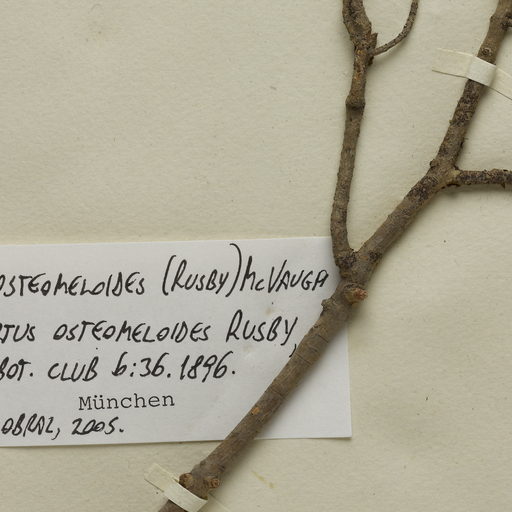 OSTEOMELOIDES (RUSBY) McVAUGH
TUS OSTEOMELOIDES RUSBY,
BOT. CLUB 6:36. 1896.
München
OBRAL, 2005.